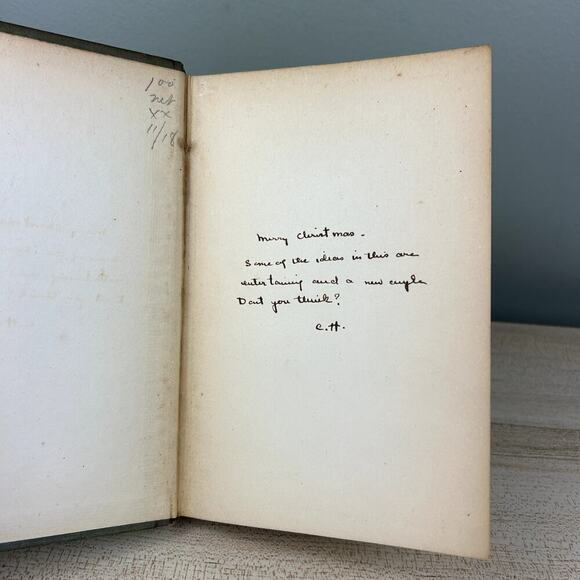 1 00
net
xx
11/18
Merry Christmas -
Some of the ideas in this are
entertaining and a new angle
Dont you think?
C.H.